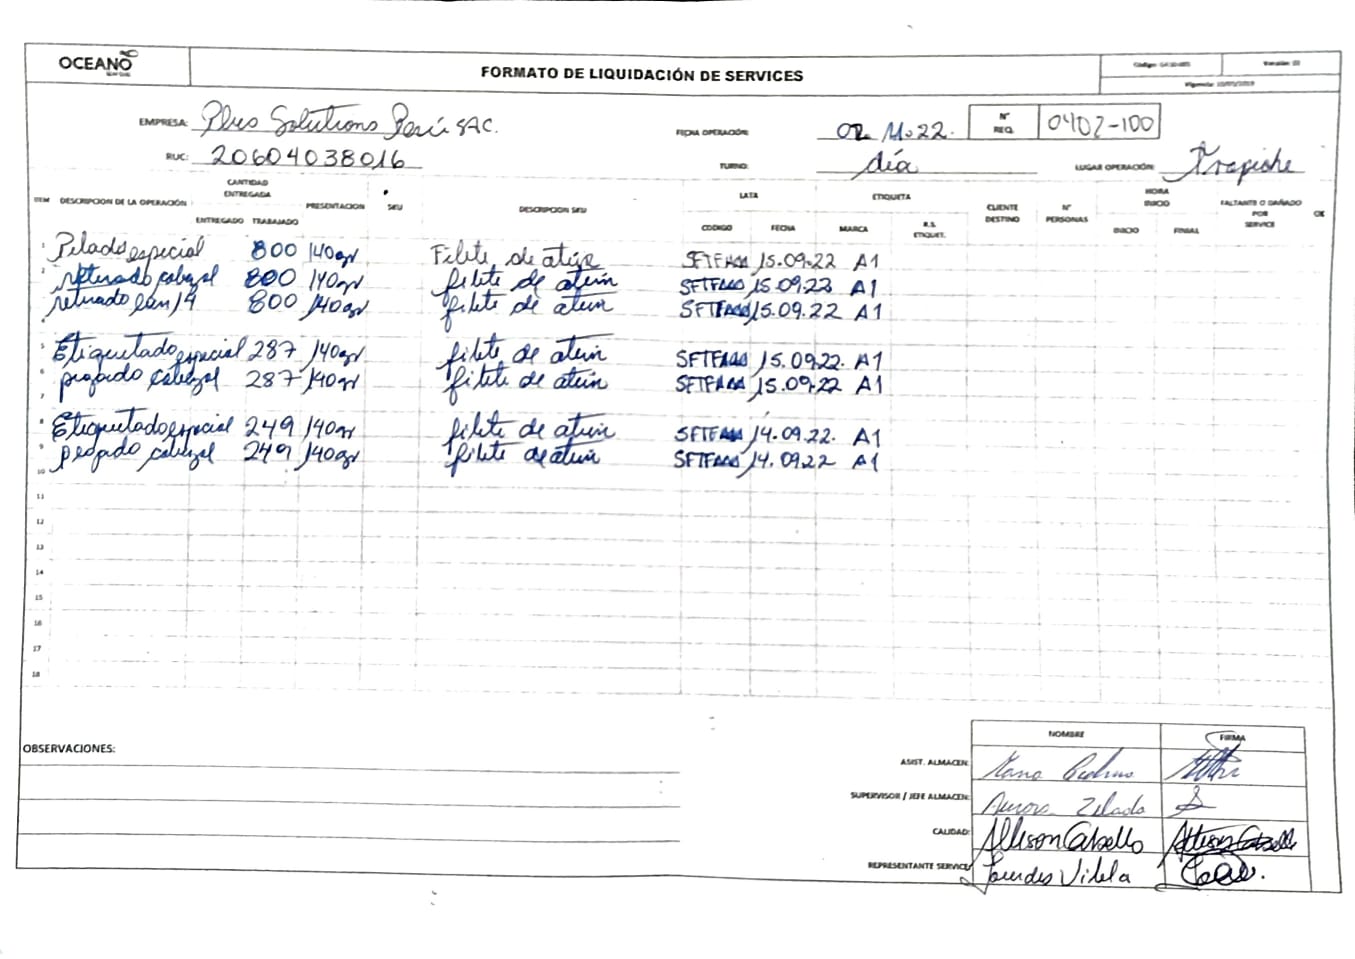 OCEANO
SEAFOOD
FORMATO DE LIQUIDACIÓN DE SERVICES
Versión: 03
EMPRESA: Plus Solutions Perú SAC.
FECHA OPERACIÓN: 02.11.22.
N° REQ. 0402-100
RUC: 20604038016
TURNO: día
LUGAR OPERACIÓN: Trapiche
ITEM DESCRIPCION DE LA OPERACIÓN CANTIDAD ENTREGADA PRESENTACION SKU DESCRIPCION SKU LATA ETIQUETA CLIENTE DESTINO N° PERSONAS HORA INICIO FALTANTE O DAÑADO POR SERVICE OK
ENTREGADO TRABAJADO CODIGO FECHA MARCA R.S. ETIQUET. INICIO FINAL
1 Pelado especial 800 140gr Filete de atún 15.09.22 A1
2 retirado cabezal 800 140gr filete de atún 15.09.22 A1
retirado 800 140gr filete de atún 15.09.22 A1
4
5 Etiquetado especial 287 140gr filete de atún 15.09.22. A1
6 pegado cabezal 287 140gr filete de atún 15.09.22 A1
7
8 Etiquetado especial 249 140gr filete de atún 14.09.22. A1
9 pegado cabezal 249 140gr filete de atún 14.09.22 A1
10
11
12
13
14
15
16
17
18
OBSERVACIONES:
NOMBRE FIRMA
ASIST. ALMACEN:
SUPERVISOR / JEFE ALMACEN: Aurora Zelada
CALIDAD: Allison Cabello
REPRESENTANTE SERVICE: Lourdes Vilela